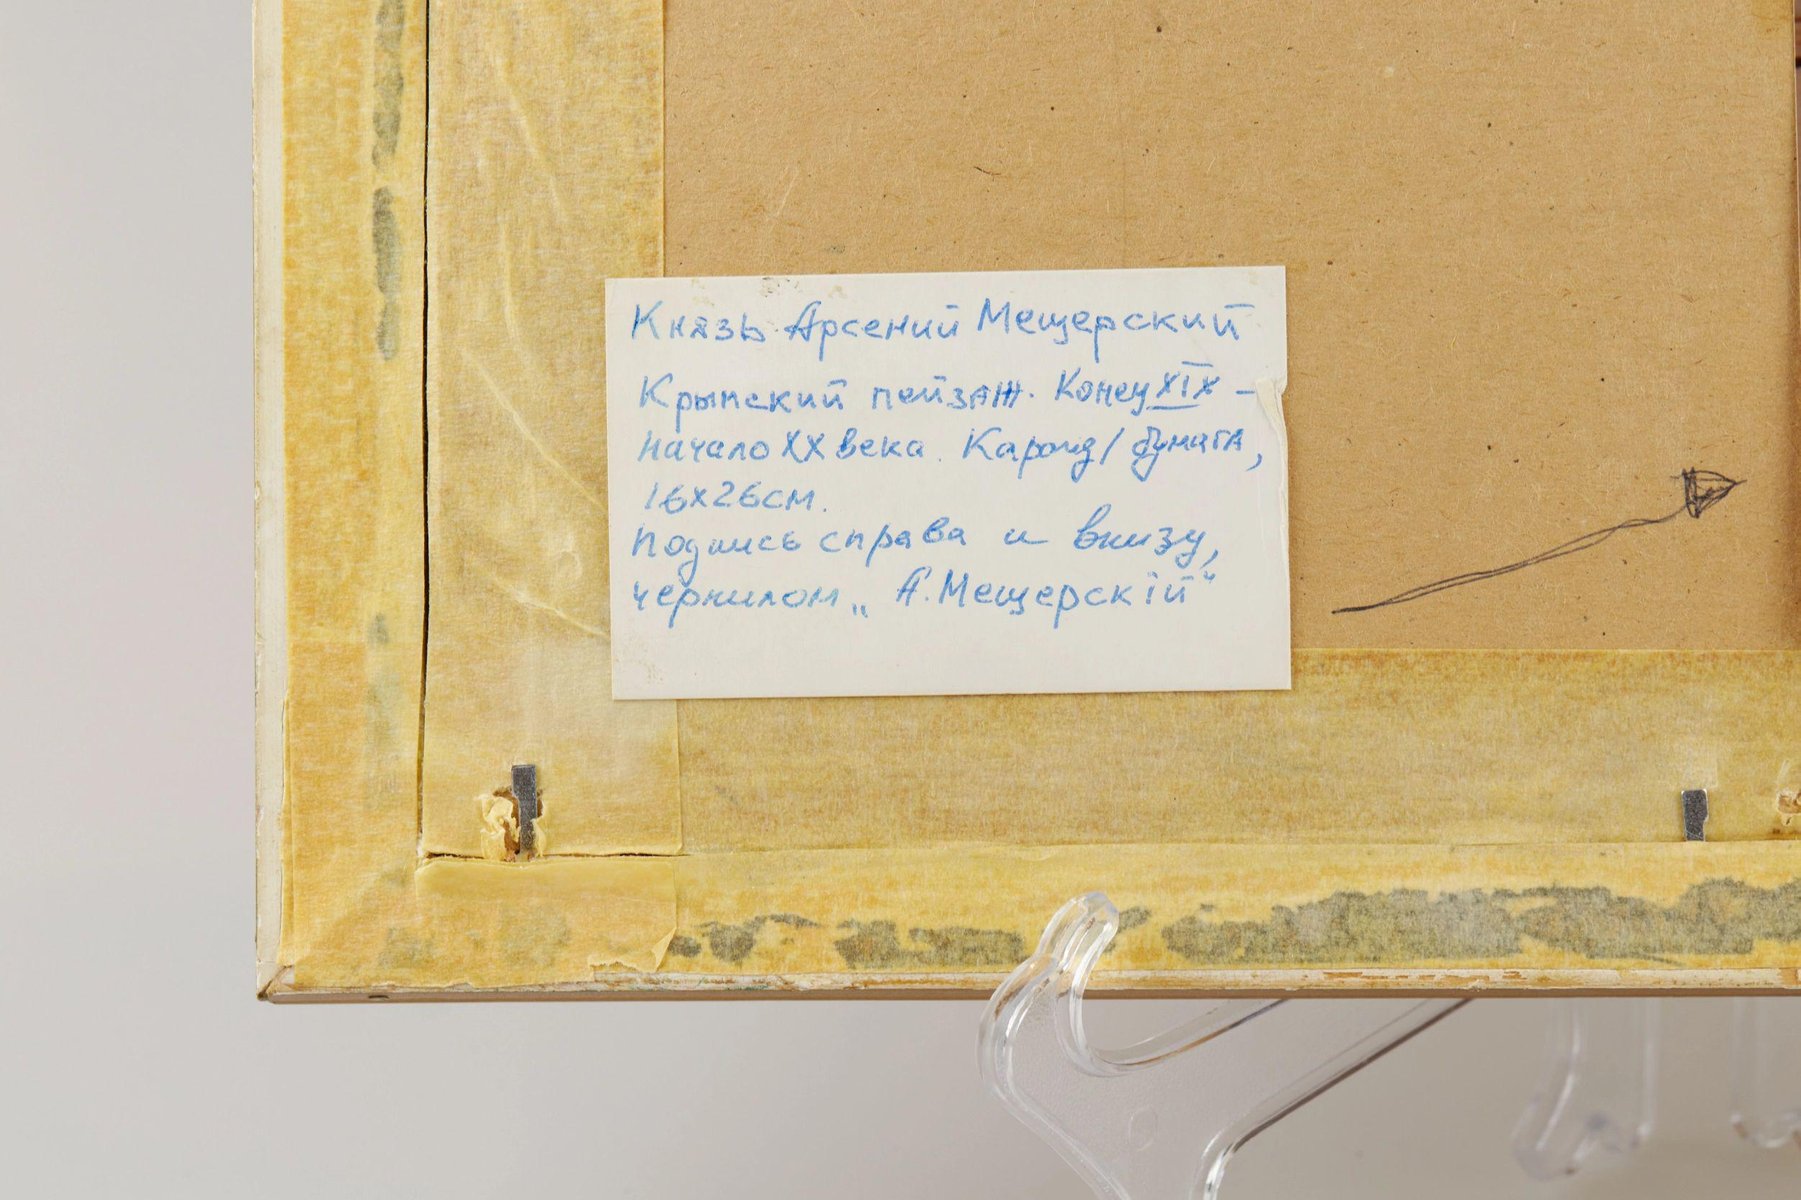 Князь Арсений Мещерский
Крымский пейзаж. Конец XIX –
начало XX века. Каронд/бумага,
16x26см.
Подпись справа и внизу,
чернилом „А. Мещерскій“